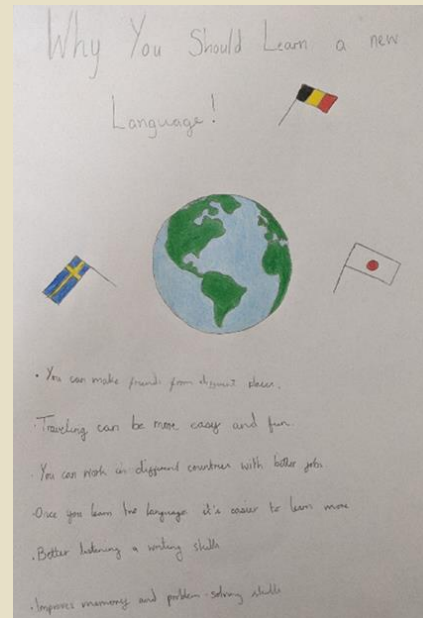 Why You Should Learn a new
Language!
• You can make friends from different places.
• Traveling can be more easy and fun.
• You can work in different countries with better jobs
• Once you learn one language it's easier to learn more
• Better listening & writing skills
• Improves memory and problem-solving skills